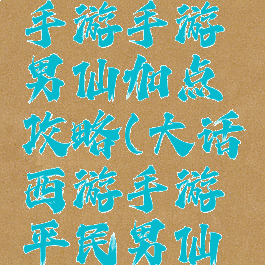 手游手游
男仙加点
攻略(大话
西游手游
平民男仙